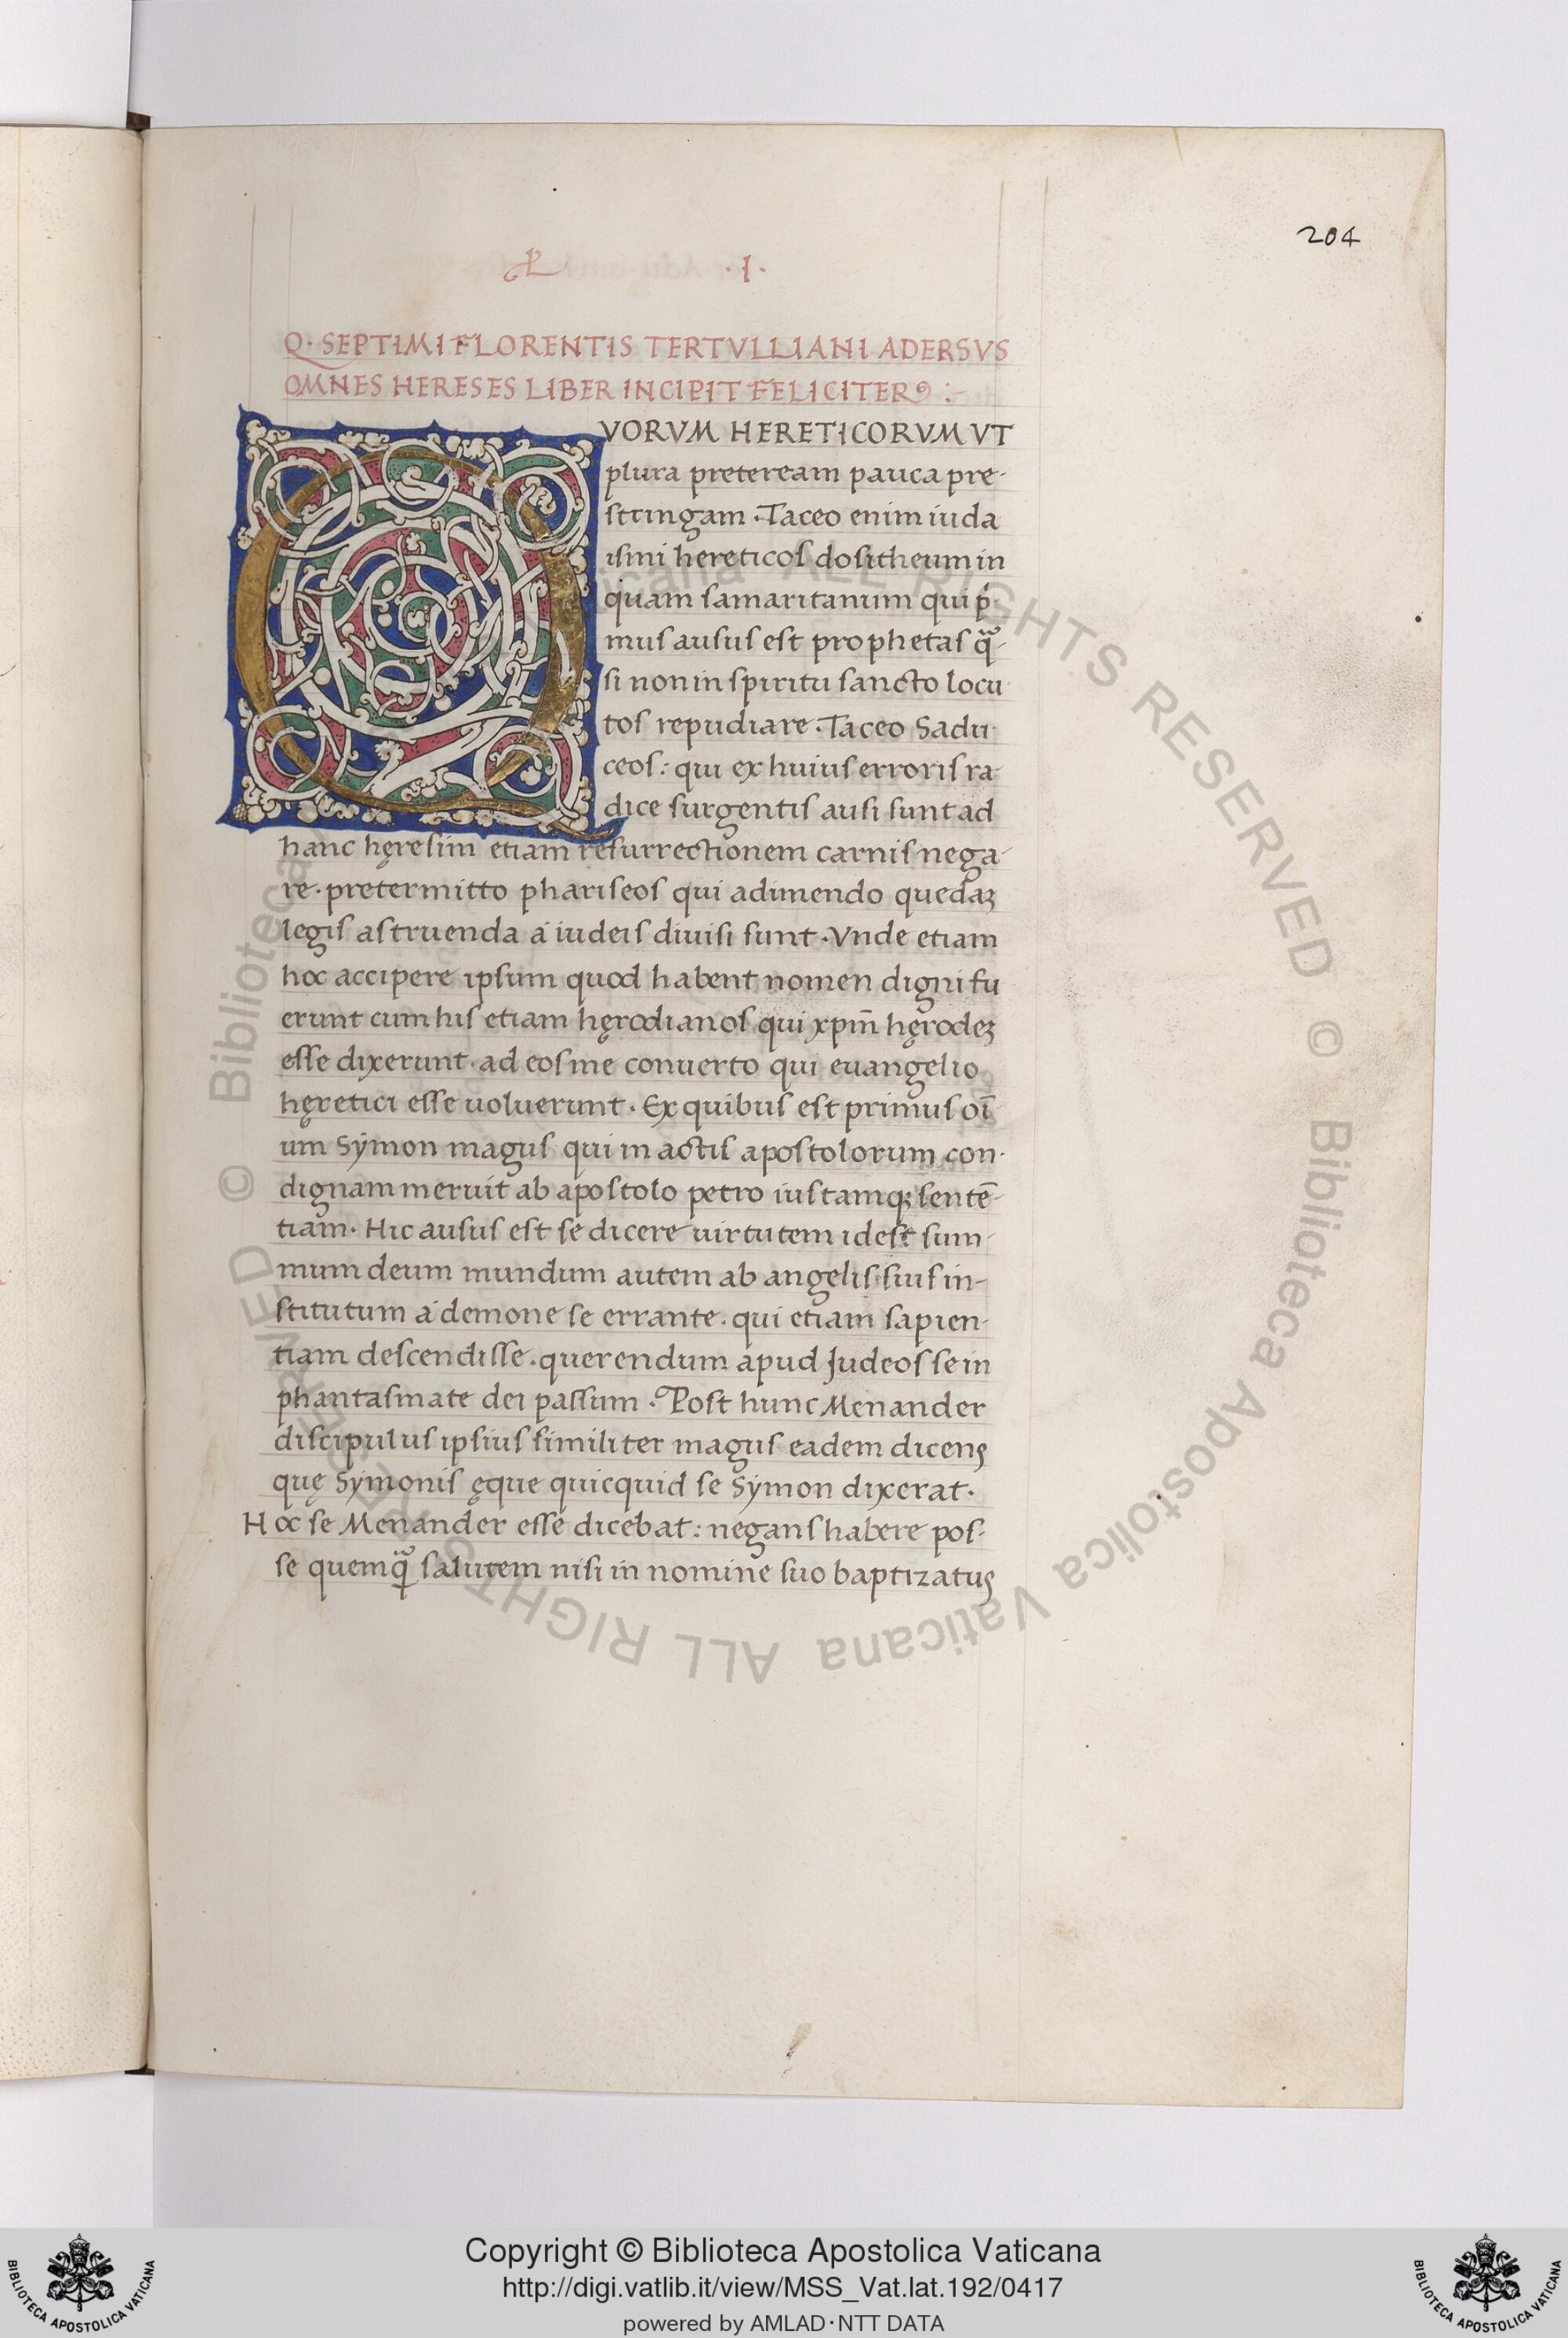 204
L · I ·
Q · SEPTIMI FLORENTIS TERTVLLIANI ADERSVS
OMNES HERESES LIBER INCIPIT FELICITER :-
QVORVM HERETICORVM VT
plura preteream pauca pre-
stringam · Taceo enim iuda
ismi hereticos dositheum in
quam samaritanum qui pi-
mus ausus est prophetas qua-
si non in spiritu sancto locu
tos repudiare · Taceo Sadu-
ceos : qui ex huius erroris ra-
dice surgentis ausi sunt ad
hanc hęresim etiam resurrectionem carnis nega-
re · pretermitto phariseos qui adimendo quedaꝫ
legis astruenda a iudeis diuisi sunt · Vnde etiam
hoc accipere ipsum quod habent nomen digni fu
erunt cum his etiam hęrodianos qui xpm̄ hęrodeꝫ
esse dixerunt · ad eos me conuerto qui euangelio
hęretici esse uoluerunt · Ex quibus est primus oı̄
um Sẏmon magus qui in actis apostolorum con-
dignam meruit ab apostolo petro iustamqꝫ sentē-
tiam · Hic ausus est se dicere uirtutem idest sum-
mum deum mundum autem ab angelis siuf in-
stitutum a demone se errante · qui etiam sapien-
tiam descendisse · querendum apud Judeos se in
phantasmate dei passum · Post hunc Menander
discipulus ipsius similiter magus eadem dicens
quę Sẏmonis ęque quicquid se Sẏmon dixerat ·
Hoc se Menander esse dicebat : negans habere pos-
se quemqꝫ salutem nisi in nomine suo baptizatus
© Biblioteca Apostolica Vaticana ALL RIGHTS RESERVED © Biblioteca Apostolica Vaticana ALL RIGHTS RESERVED
Copyright © Biblioteca Apostolica Vaticana
http://digi.vatlib.it/view/MSS_Vat.lat.192/0417
powered by AMLAD·NTT DATA
BIBLIOTECA APOSTOLICA VATICANA
BIBLIOTECA APOSTOLICA VATICANA